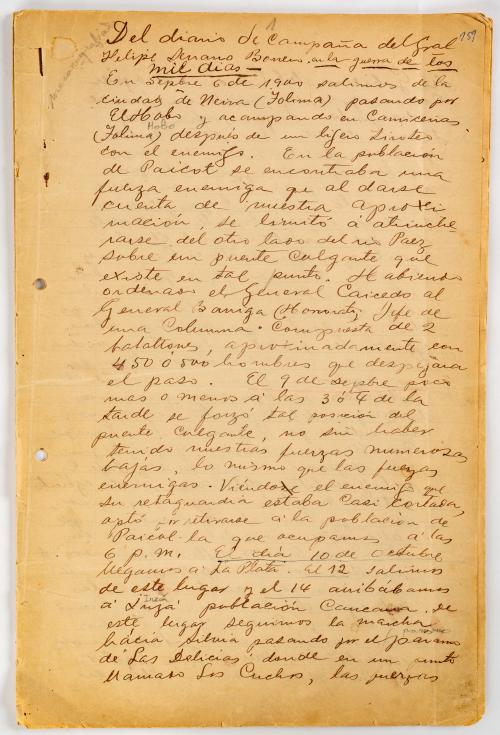 1
Del diario de Campaña del Gral 159
Felipe Serrano Borrero, en la guerra de los
mil dias —
En Sepbre 6 de 1900 salimos de la
ciudad de Neiva (Tolima) pasando por
El Hobo y acampando en Carnicerias
Hobo
(Tolima) después de un lijero tiroteo
con el enemigo. En la población
de Paicol se encontraba una
fuerza enemiga que al darse
cuenta de nuestra aproxi
mación, se limitó á atrinche
rarse del otro lado del rio Paez
sobre un puente Colgante que
existe en tal punto. Habiendo
ordenado el General Caicedo al
General Barriga Jefe de
una Columna Compuesta de 2
batallones, aproximadamente con
450 ó 500 hombres que despejara
el paso. El 9 de sepbre poco
mas o menos á las 3 ó 4 de la
tarde se forzó tal posición del
puente Colgante, no sin haber
tenido nuestras fuerzas numerosas
bajas, lo mismo que las fuerzas
enemigas. Viéndose el enemigo que
su retaguardia estaba casi cortada,
optó por retirarse á la población de
Paicol la que ocupamos á las
6 p.m. El dia 10 de Octubre
llegamos á La Plata. El 12 salimos
de este lugar y el 14 arribábamos
á Inzá población Caucana. De
este lugar seguimos la marcha
hácia Silvia pasando por el páramo
de "Las Delicias" donde en un punto
llamado Los Cuchos, las fuerzas